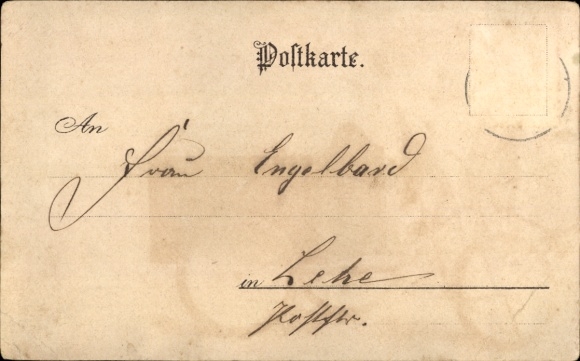 Postkarte.
An
Frau Engelbard
in Lehe
Poststr.